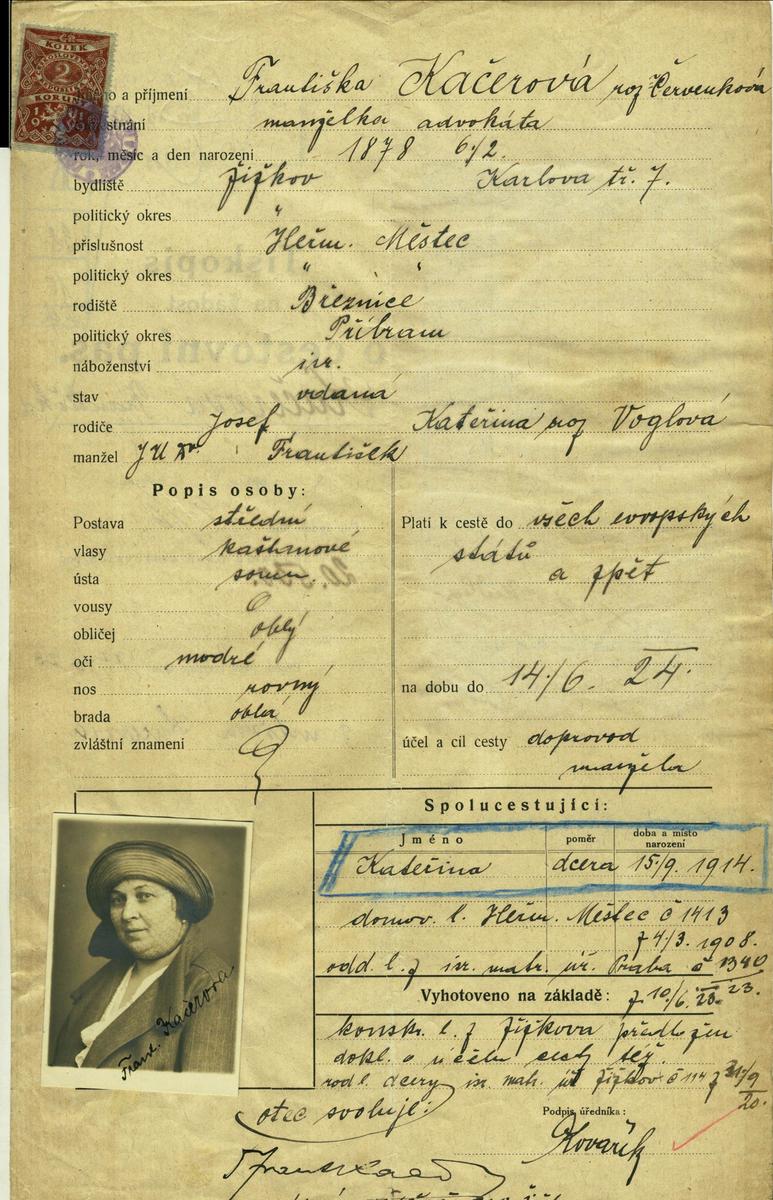 KOLEK
2
KORUNY
a příjmení Františka Kačerová roz Červenková
manželka advokáta
rok, měsíc a den narození 1878 6/2.
bydliště Žižkov Karlova tř. 7.
politický okres "
příslušnost Heřm. Městec
politický okres " "
rodiště Březnice
politický okres Příbram
náboženství isr.
stav vdaná
rodiče Josef, Kateřina roz Voglová
manžel JUDr. František
Popis osoby:
Postava střední
vlasy kaštanové
ústa soum.
vousy
obličej oblý
oči modré
nos rovný
brada oblá
zvláštní znamení
Platí k cestě do všech evropských
států
a zpět
na dobu do 14/6. 24.
účel a cíl cesty doprovod
manžela
Spolucestující:
Jméno poměr doba a místo narození
Kateřina dcera 15/9. 1914.
domov. l. Heřm. Městec č 1413
z 4/3. 1908.
odd. l. z isr. matr. úř. Praha č 1340
Vyhotoveno na základě: z 10/6. 23.
konskr. l. z Žižkova předložen
dokl. o účelu cesty též.
rod l. dcery isr. mat. úř Žižkov č 114 z 21/9
20.
Frant. Kačerová
otec svoluje:
Podpis úředníka:
Kovařík